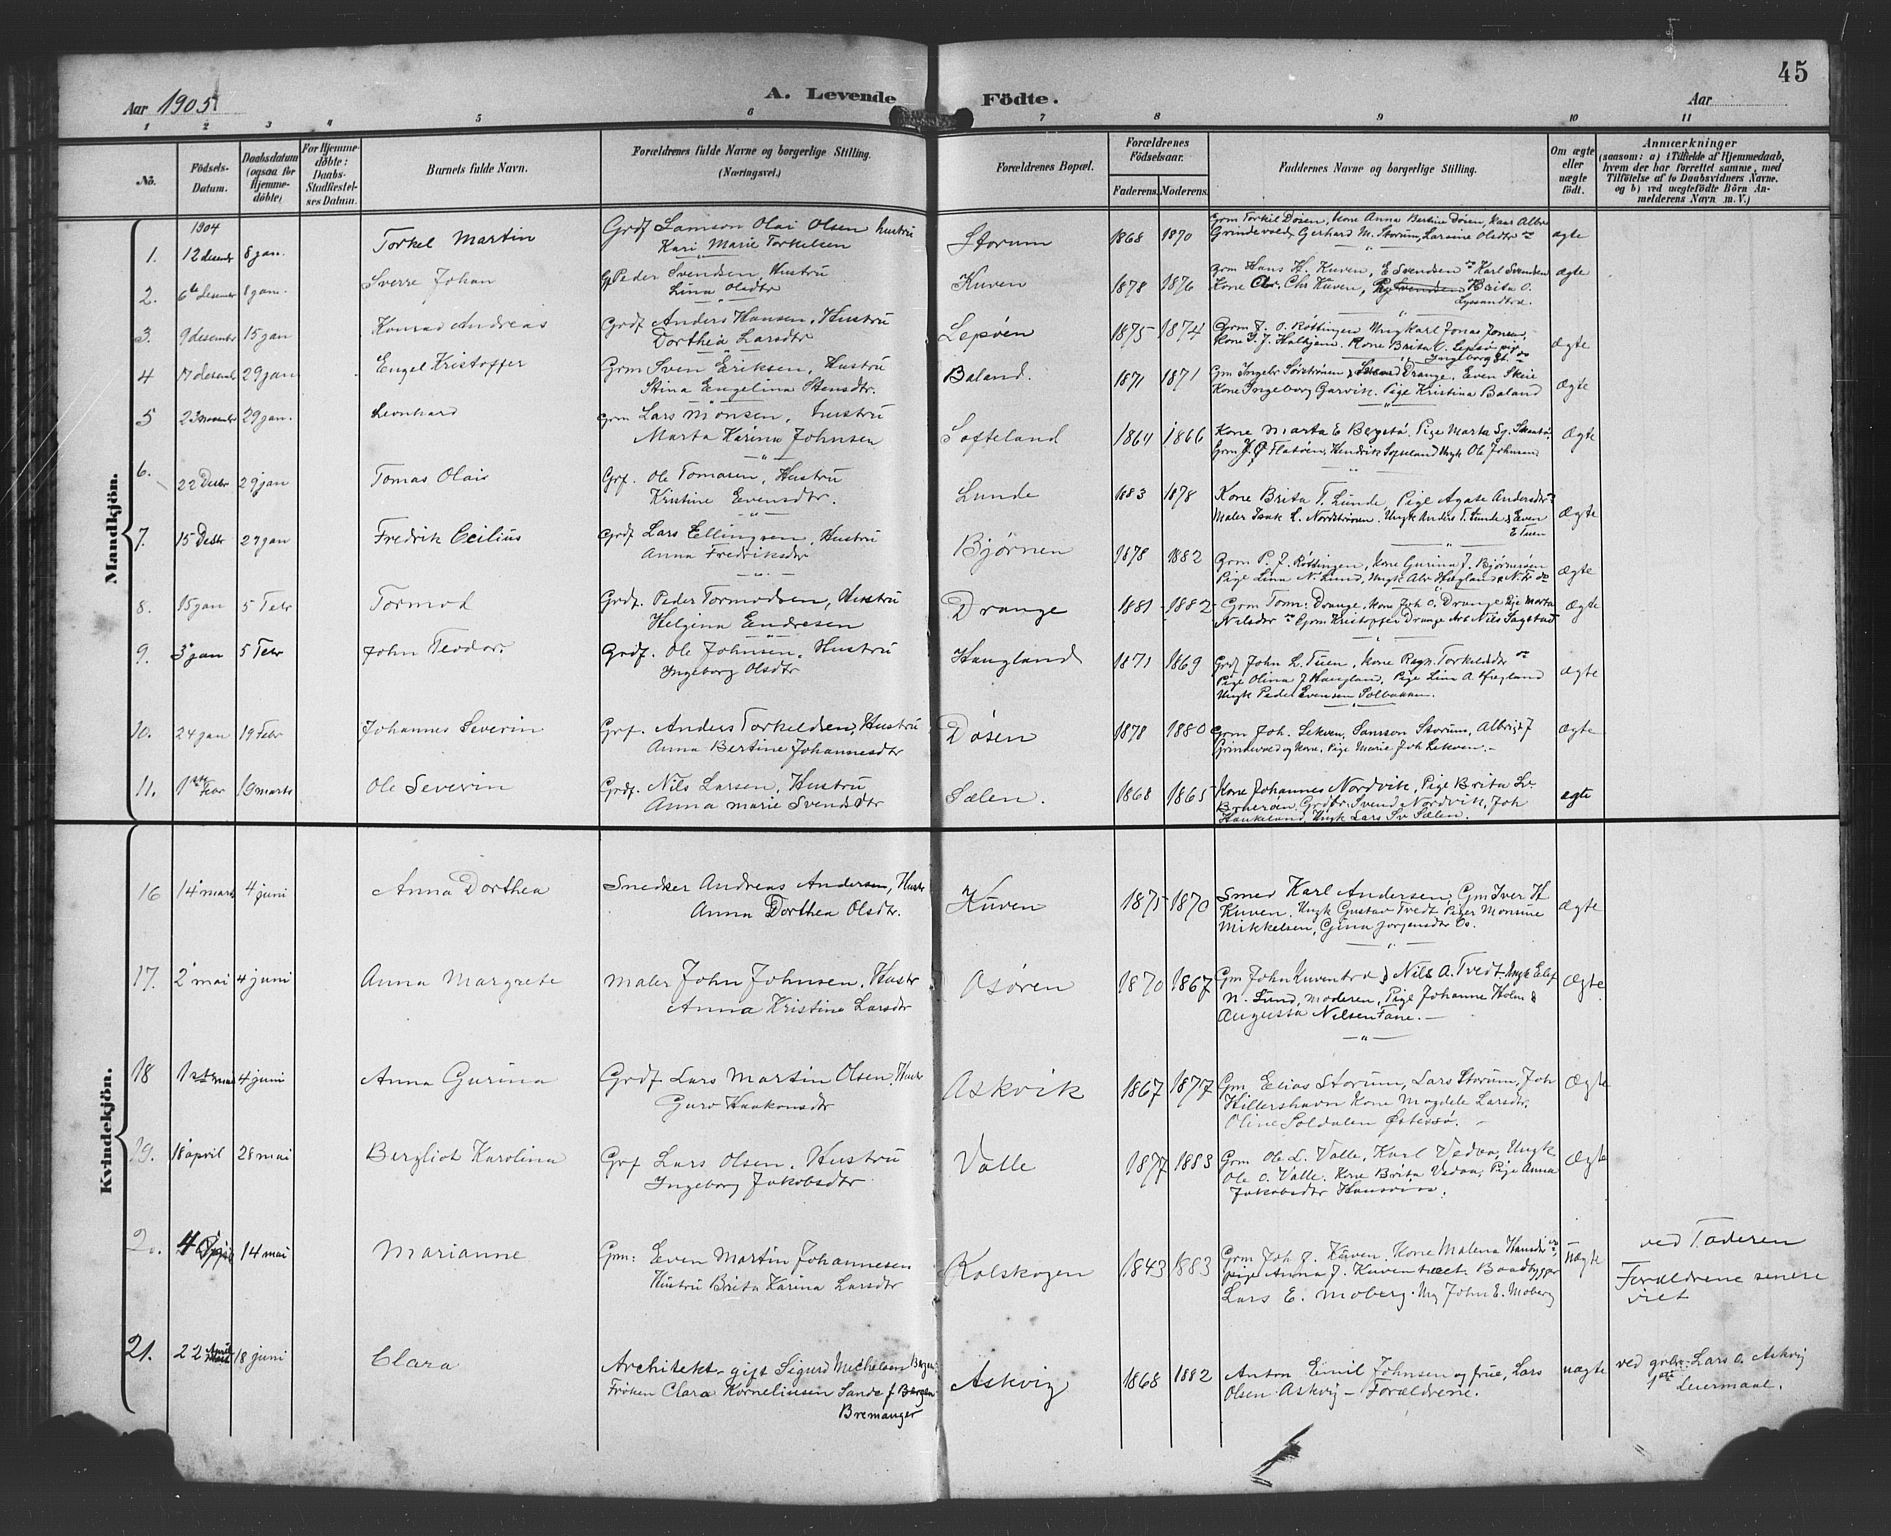 45
Aar 1905
A. Levende Födte.
Aar
1 2 3 4 5 6 7 8 9 10 11
No.
Födsels-Datum.
Daabsdatum (ogsaa for Hjemmedöbte)
For Hjemmedöbte: Daabs-Stadfæstelses Datum.
Barnets fulde Navn.
Forældrenes fulde Navne og borgerlige Stilling. (Næringsvei.)
Forældrenes Bopæl.
Forældrenes Födselsaar.
Faderens. Moderens.
Faddernes Navne og borgerlige Stilling.
Om ægte eller uægte födt.
Anmærkninger
(saasom: a) i Tilfælde af Hjemmedaab, hvem der har forrettet samme, med Tilföielse af to Daabsvidners Navne. og b) ved uægtefödte Börn Anmelderens Navn m. V.)
Mandkjön.
1904
1. 12 desembr 8 jan. Torkel Martin
Grdf Samson Olai Olsen hustru
Kari Marie Torkelsen
Storum 1868 1870
Grm Torkil Døsen, Kone Anna Bertine Døsen,
Grindevold, Gerhard M. Storum, Larsine Olsdtr
ægte
2. 6te desember 8 jan. Sverre Johan
Peder Svendsen, Hustru
Lina Olsdtr
Kuven 1878 1876
Grm Hans H. Kuven, E Svendsen Karl Svendsen
Kone Chr Kuven, Brita O.
Lyssandtræ.
ægte
3. 9 desembr 15 jan Konrad Andreas
Grdf Anders Hansen, Hustru
Dorthea Larsdtr
Lepsøen 1875 1874
Grm J. O. Røttingen Ungkarl Jonas Jonsen,
Kone J. J. Halhjem. Kone Brita O. Lepsø pige
Ingeborg
ægte
4 17 desembr 29 jan Engel Kristoffer
Grm Sven Eriksen, Hustru
Stina Engelina Stensdtr.
Baland. 1871 1871
Gm Ingebr Sørstrønen, Drange, Even Skeie
Kone Ingeborg Garvik. Pige Kristina Baland
ægte
5 23 november 29 jan. Leonhard
Grm Lars Monsen, hustru
Marta Karina Johnsen
Søfteland 1864 1866
Kone Marta E Bergstø, Pige Marta
Grm J. Ø Flatøen, Hendrik Søfteland Ungk Ole Johnsen
ægte
6. 22 Desbr 29 jan Tomas Olais
Grf. Ole Tomasen, Hustru
Kristine Evensdtr.
Lunde 1883 1878
Kone Brita T. Lunde, Pige Agate Andersdtr
Maler Isak L. Nordstrønen. Ungk Anders T. Lunde & Even
E Tuen
ægte
7. 15 Desbr 29 jan Fredrik Ceilius
Grdf Lars Ellingsen, Hustru
Anna Fredriksdtr
Bjørnen 1878 1882
Grm P. J. Røttingen, Kone Gurina J. Bjørnesen
Pige Lina N. Lund, Ungk
ægte
8. 15 jan 5 Febr Tormod
Grdf. Peder Tormodsen, Hustru
Helgina Endresen
Drange 1881 1882
Grm Torm: Drange, Kone Joh O. Drange Pige Marta
Nilsdtr Grm Kristoffer Drange Nils Sagstad
ægte
9. 3 jan 5 Febr John Teodor.
Grdf. Ole Johnsen, Hustru
Ingeborg Olsdtr
Haugland 1871 1869
Grdf John L. Tuen, Kone Ragn. Torkelsdtr
Pige Olina J Haugland, Pige Lina A Hegland
Ungk Peder Evensen Solbakken.
ægte
10. 24 jan 19 Febr Johannes Severin
Grf. Anders Torkeldsen, Hustru
Anna Bertine Johannesdtr
Døsen 1878 1880
Grm Joh. Lekven, Samson Storum, Albrigt J
Grindevold og Kone, Pige Marie Joh Lekven. –
ægte
11. 1ste Febr 19 marts Ole Severin
Grdf. Nils Larsen, Hustru
Anna Marie Svendsdtr
Sælen. 1868 1865
Kone Johannes Nordvik, Pige Brita
Grdbr. Svend Nordvik, Joh
Haukeland, Ungk Lars Sv Sælen.
ægte
Kvindekjön.
16 14 marts 4 juni Anna Dorthea
Snedker Andreas Andersen, Hustr
Anna Dorthea Olsdtr.
Kuven 1875 1870
Smed Karl Andersen, Gm Iver H
Kuven. Ungk Gustav Tvedt Piger Monsine
Mikkelsen, Gina Jørgensdtr Os.
ægte
17. 2 mai 4 juni Anna Margrete
Maler John Johnsen, Hustr
Anna Kristine Larsdtr
Osøren 1870 1867
Gm John Kuventræ & Nils A. Tvedt Ungk Elef
N. Lund, Moderen, Pige Johanne Holm &
Augusta Nilsen Fane. –
ægte
18 1ste mai 4 juni Anna Gurina
Grdf Lars Martin Olsen, Hustr
Guro Haakonsdtr
Askvik 1867 1877
Gm Elias Storum, Lars Storum, Joh
Hillershavn Kone Magdele Larsdtr,
Oline Soldalen Østessø.
ægte
19. 18 april 28 mai Bergliot Karolina
Grf Lars Olsen, Hustru
Ingeborg Jakobsdtr
Valle 1877 1883
Grm Ole L. Valle, Karl Vedaa, Ungk
Ole O. Valle. Kone Brita Vedaa, Pige Anna
Jakobsdtr
ægte
20. 4 14 mai Marianne
Grm: Even Martin Johannesen
Hustru Brita Karina Larsdtr
Kolskogen 1843 1883
Grm Joh J. Kuven. Kone Malena Hansdtr
pige Anna J. Kuventræet Baadbygger
Lars E. Moberg. Ung John E. Moberg
uægte
ved Faderen
Forældrene senere
viet
21. 22 April 18 juni Clara
Architekt gift Sigurd Michelsen Bergen
Frøken Clara Korneliusen Sande f Bergen
Bremanger
Askvig 1868 1882
Anton Emil Johnsen og frue, Lars
Olsen Askvig – Forældrene.
uægte
ved grbr. Lars O. Askvig
1ste Leiermaal.